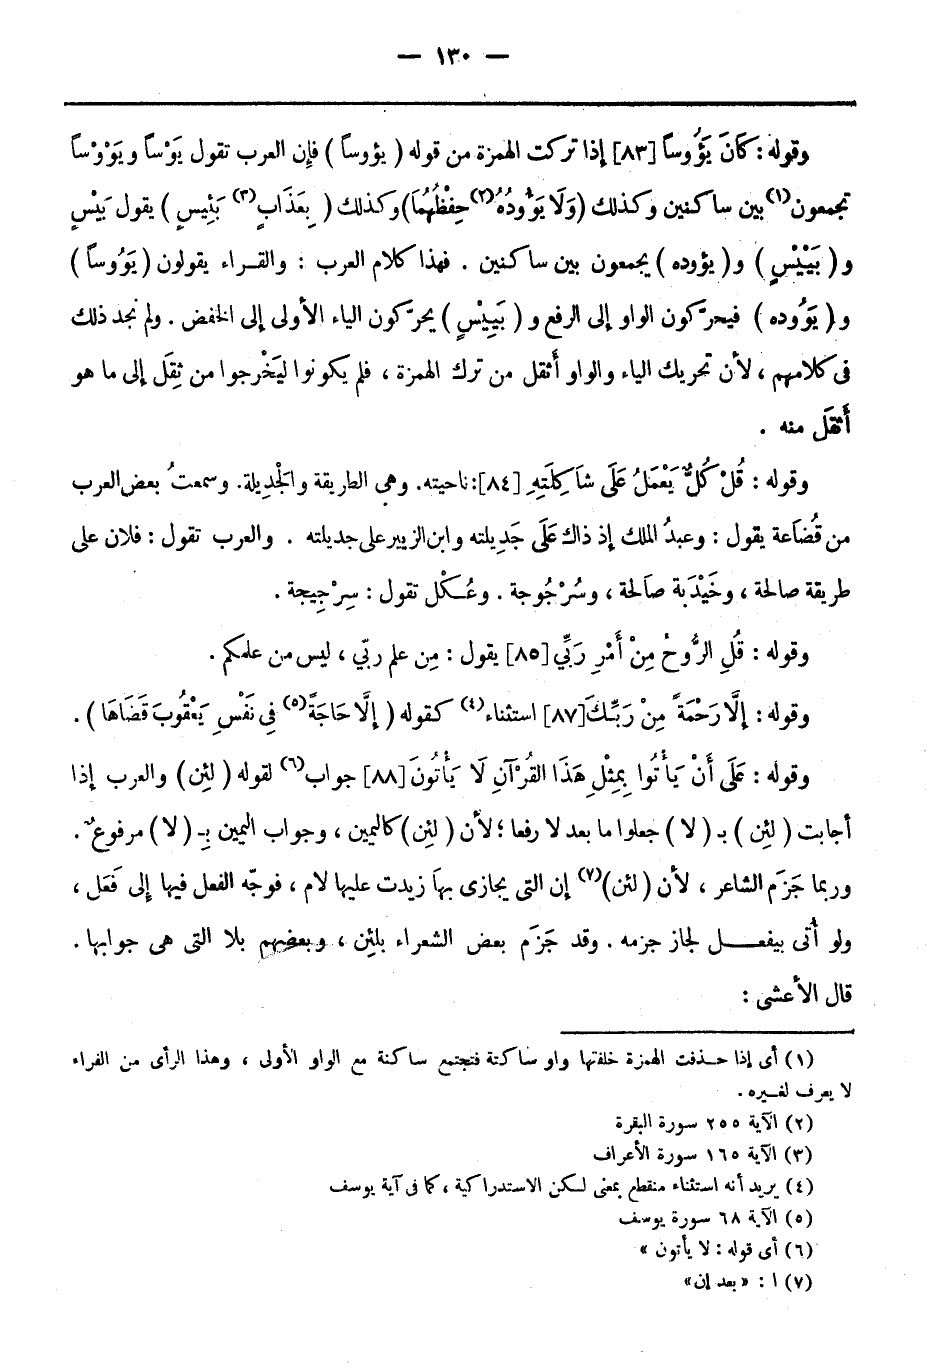 — ١٣٠ —
وقوله : كَانَ يَؤُوساً [٨٣] إذا تركت الهمزة من قوله ( يؤوساً ) فإن العرب تقول يَوْساً ويَوْوْساً
تجمعون(١) بين ساكنين وكذلك (وَلَا يَؤُودُهُ(٢) حِفْظُهُمَا) وكذلك ( بِعَذَابٍ(٣) بَئِيسٍ ) يقول بَيْسٍ
و ( بَيْيْسٍ ) و ( يؤوده ) يجمعون بين ساكنين . فهذا كلام العرب : والقراء يقولون ( يَوُوساً )
و ( يَوُوده ) فيحرّكون الواو إلى الرفع و ( بَيِيْسٍ ) يحرّكون الياء الأولى إلى الخفض . ولم نجد ذلك
فى كلامهم ، لأن تحريك الياء والواو أثقل من ترك الهمزة ، فلم يكونوا ليَخْرجوا من ثِقَل إلى ما هو
أثقَل منه .
وقوله : قُلْ كُلٌّ يَعْمَلُ عَلَى شاَكِلَتِهِ [٨٤]: ناحيته. وهى الطريقة والجَدِيلة. وسمعتُ بعض العرب
من قُضَاعة يقول : وعبدُ الملك إذ ذاك عَلَى جَدِيلته وابن الزبير على جديلته . والعرب تقول : فلان على
طريقة صالحة ، وخَيْدَبة صاَلحة ، وسُرْجُوجة . وعُكْل تقول : سِرْجِيجة .
وقوله : قُلِ الرُّوحُ مِنْ أَمْرِ رَبِّي [٨٥] يقول : مِن علم ربّي ، ليس من علمكم .
وقوله : إلَّا رَحْمَةً مِنْ رَبِّكَ [٨٧] استثناء(٤) كقوله ( إلَّا حَاجَةً(٥) فِي نَفْسِ يَعْقُوبَ قَضَاهَا ) .
وقوله : عَلَى أَنْ يَأْتُوا بِمِثْلِ هَذَا القُرْآنِ لَا يَأْتُونَ [٨٨] جواب(٦) لقوله ( لئن ) والعرب إذا
أجابت ( لئن ) بـ ( لا ) جعلوا ما بعد لا رفعا ؛ لأن ( لئن ) كاليمين ، وجواب اليمين بـ ( لا ) مرفوع .
وربما جَزَم الشاعر ، لأن ( لئن )(٧) إن التى يجازى بهاَ زيدت عليها لام ، فوجّه الفعل فيها إلى فَعَل ،
ولو أتى بيفعل لجاز جزمه . وقد جَزَم بعض الشعراء بلئن ، وبعضهم بلا التى هى جوابها .
قال الأعشى :
(١) أى إذا حذفت الهمزة خلفتها واو ساكنة فتجتمع ساكنة مع الواو الأولى ، وهذا الرأى من الفراء
لا يعرف لغيره .
(٢) الآية ٢٥٥ سورة البقرة
(٣) الآية ١٦٥ سورة الأعراف
(٤) يريد أنه استثناء منقطع بمعنى لكن الاستدراكية ، كما فى آية يوسف
(٥) الآية ٦٨ سورة يوسف
(٦) أى قوله : لا يأتون »
(٧) ا : « بعد إن»